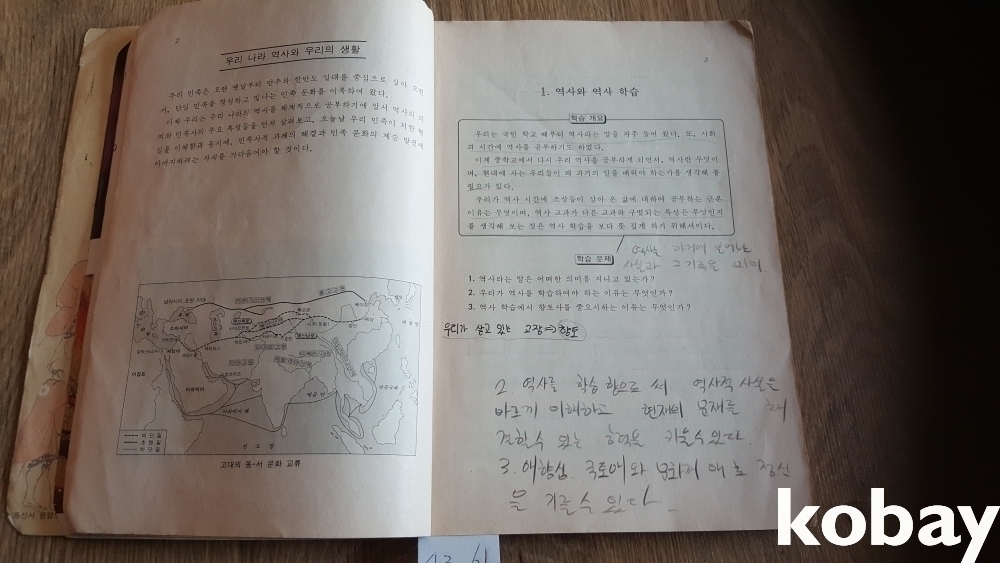 2
우리 나라 역사와 우리의 생활
우리 민족은 오랜 옛날부터 만주와 한반도 일대를 중심으로 살아 오면
서, 단일 민족을 형성하고 빛나는 민족 문화를 이룩하여 왔다.
이제 우리는 우리 나라의 역사를 체계적으로 공부하기에 앞서 역사의 의
미와 민족사의 주요 특성들을 먼저 살펴보고, 오늘날 우리 민족이 처한 현
실을 이해함과 동시에, 민족사적 과제의 해결과 민족 문화의 계승 발전에
이바지하려는 자세를 가다듬어야 할 것이다.
이집트
아라비아
아라비아 해
벵골 만
인 도 양
비 단 길
초 원 길
바 닷 길
고대의 동·서 문화 교류
3
1. 역사와 역사 학습
학습 개요
우리는 국민 학교 때부터 역사라는 말을 자주 들어 왔다. 또, 사회
과 시간에 역사를 공부하기도 하였다.
이제 중학교에서 다시 우리 역사를 공부하게 되면서, 역사란 무엇이
며, 현대에 사는 우리들이 왜 과거의 일을 배워야 하는가를 생각해 볼
필요가 있다.
우리가 역사 시간에 조상들이 살아 온 삶에 대하여 공부하는 근본
이유는 무엇이며, 역사 교과가 다른 교과와 구별되는 특성은 무엇인지
를 생각해 보는 것은 역사 학습을 보다 뜻 깊게 하기 위해서이다.
역사는 과거에 일어난
사실과 그 기록을 의미
학습 문제
1. 역사라는 말은 어떠한 의미를 지니고 있는가?
2. 우리가 역사를 학습하여야 하는 이유는 무엇인가?
3. 역사 학습에서 향토사를 중요시하는 이유는 무엇인가?
우리가 살고 있는 고장⇒향토
2 역사를 학습함으로써 역사적 사실을
바르게 이해하고 현재의 문제를 해
결할수 있는 능력을 키울수있다.
3. 애향심, 국토애와 문화재 애호 정신
을 기를수 있다.
kobay